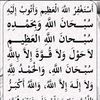 أَسْتَغْفِرُ اللَّهَ الْعَظِيمَ وَأَتُوبُ إِلَيْهِ
سُبْحَانَ اللَّهِ وَبِحَمْدِهِ
سُبْحَانَ اللَّهِ الْعَظِيمِ
لَا حَوْلَ وَلَا قُوَّةَ إِلَّا بِاللَّهِ
سُبْحَانَ اللَّهِ، وَالْحَمْدُ لِلَّهِ
وَلَا إِلَهَ إِلَّا اللَّهُ، وَاللَّهُ أَكْبَرُ